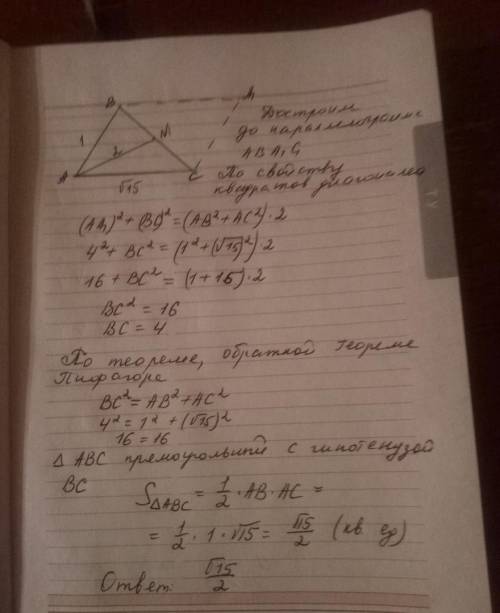 B A₁
Достроим
1 2 M до параллелограмма
ABA₁C
A √15 C По свойству
квадратов диагоналей
(AA₁)² + (BC)² = (AB² + AC²) · 2
4² + BC² = (1² + (√15)²) · 2
16 + BC² = (1 + 15) · 2
BC² = 16
BC = 4
По теореме, обратной теореме
Пифагора
BC² = AB² + AC²
4² = 1² + (√15)²
16 = 16
Δ ABC прямоугольный с гипотенузой
BC S△ABC = 1/2 · AB · AC =
= 1/2 · 1 · √15 = √15/2 (кв. ед)
Ответ: √15/2